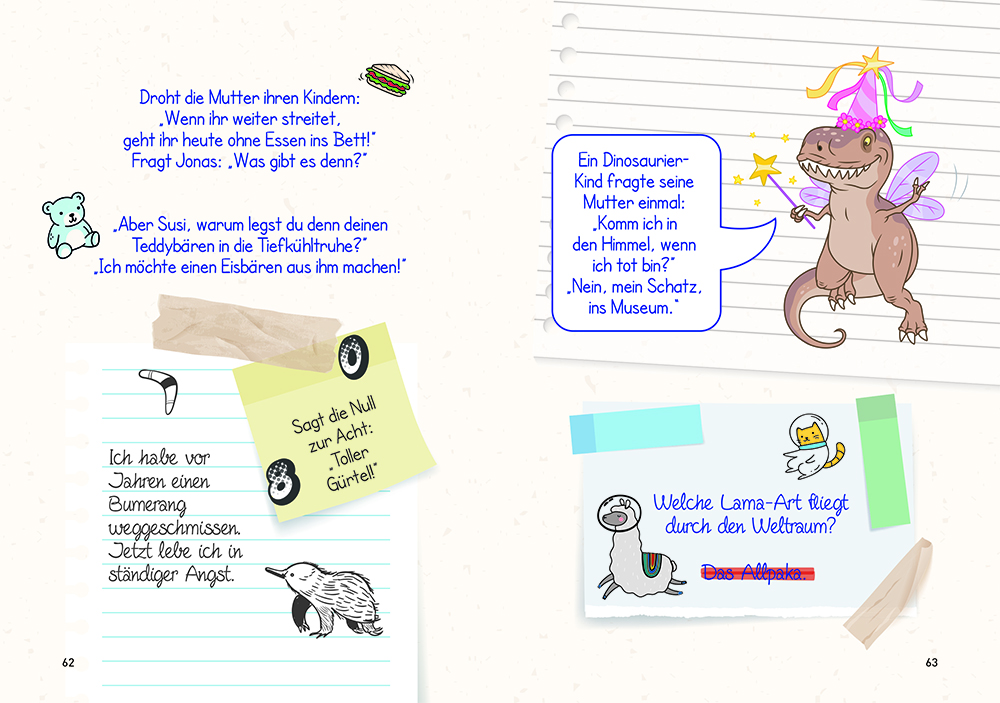 Droht die Mutter ihren Kindern:
„Wenn ihr weiter streitet,
geht ihr heute ohne Essen ins Bett!“
Fragt Jonas: „Was gibt es denn?“
„Aber Susi, warum legst du denn deinen
Teddybären in die Tiefkühltruhe?“
„Ich möchte einen Eisbären aus ihm machen!“
0
Sagt die Null
zur Acht:
„Toller
Gürtel!“
8
Ich habe vor
Jahren einen
Bumerang
weggeschmissen.
Jetzt lebe ich in
ständiger Angst.
62
Ein Dinosaurier-
Kind fragte seine
Mutter einmal:
„Komm ich in
den Himmel, wenn
ich tot bin?“
„Nein, mein Schatz,
ins Museum.“
Welche Lama-Art fliegt
durch den Weltraum?
Das Allpaka.
63